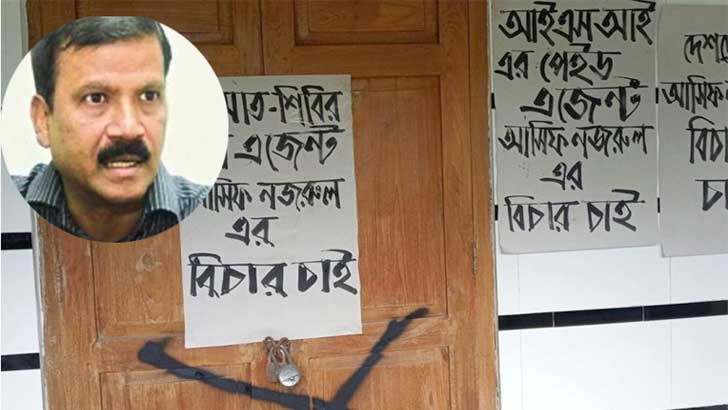 মাত-শিবির
এজেন্ট
আসিফ নজরুল
এর
বিচার চাই
আইএসআই
এর পেইড
এজেন্ট
আসিফ নজরুল
এর
বিচার চাই
আসিফ
বিচ